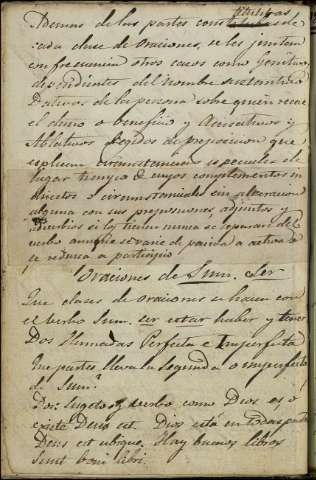 titutivas
Ademas de las partes cons de
cada clase de oraciones, se les juntan
con frecuencia otros casos como Genitivos
dependientes del Nombre sustantivo
Dativos de la persona sobre quien recae
el daño o beneficio y Acusativos y
Ablativos regidos de preposicion que
esplican circunstancias especiales de
lugar tiempo & cuyos complementos in
directos o circunstanciales sin alteracion
alguna con sus preposiciones adjuntos y
adverbios si los tienen nunca se separan del
verbo aunque se varie de pasiva a activa o
se reduzca a participio
Oraciones de Sum. Ser
Que clases de oraciones se hacen con
el verbo Sum. ser estar haber y tener
Dos llamadas Perfecta e Imperfecta
Que partes lleva la segunda o imperfecta
de Sum?
Dos: sugeto y verbo como Dios es, o
existe Deus est. Dios está en todas partes
Deus est ubique. Hay buenos libros
Sunt boni libri.